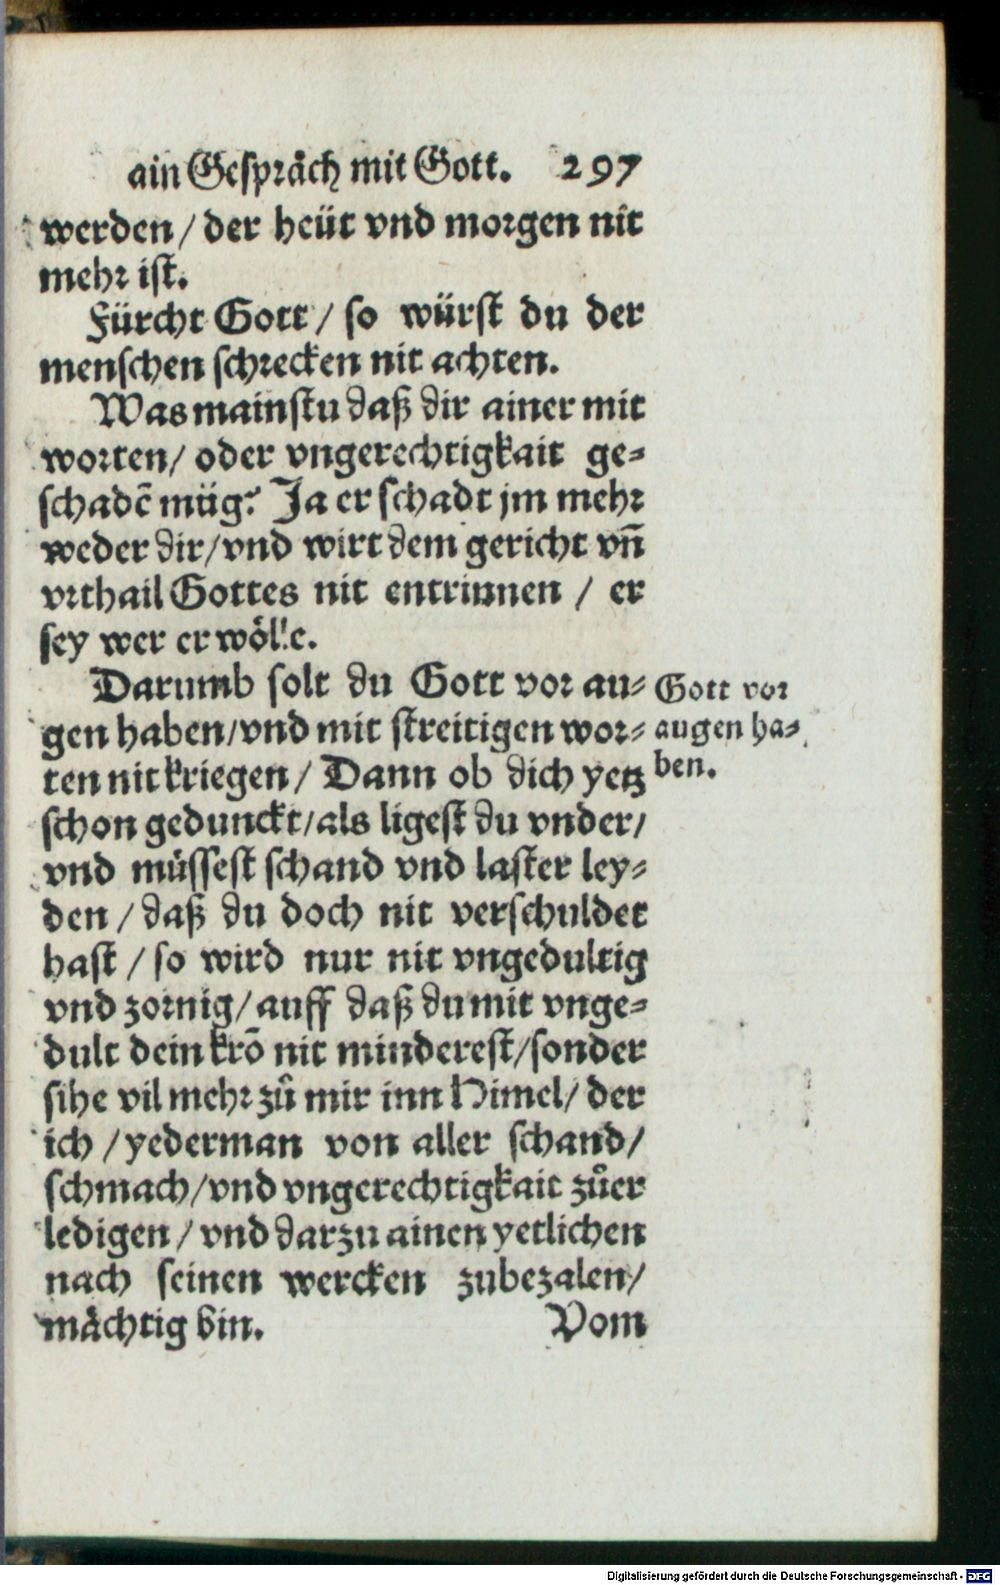 ain Gespräch mit Gott. 297
werden / der heüt vnd morgen nit
mehr ist.
Fürcht Gott / so würst du der
menschen schrecken nit achten.
Was mainstu daß dir ainer mit
worten / oder vngerechtigkait ge=
schadē müg? Ja er schadt jm mehr
weder dir / vnd wirt dem gericht vñ
vrthail Gottes nit entrinnen / er
sey wer er wölle.
Darumb solt du Gott vor au=
gen haben / vnd mit streitigen wor=
ten nit kriegen / Dann ob dich yetz
schon gedunckt / als ligest du vnder /
vnd müssest schand vnd laster ley=
den / daß du doch nit verschuldet
hast / so wird nur nit vngedultig
vnd zornig / auff daß du mit vnge=
dult dein krō nit minderest / sonder
sihe vil mehr zů mir inn Himel / der
ich / yederman von aller schand /
schmach / vnd vngerechtigkait zůer
ledigen / vnd darzu ainen yetlichen
nach seinen wercken zubezalen /
mächtig bin.
Vom
Gott vor
augen ha=
ben.
Digitalisierung gefördert durch die Deutsche Forschungsgemeinschaft - DFG